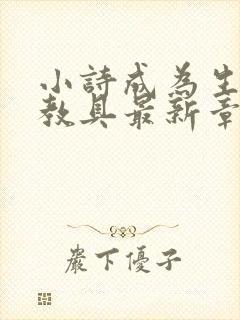 小詩成為生
教具最新章
嚴下優子